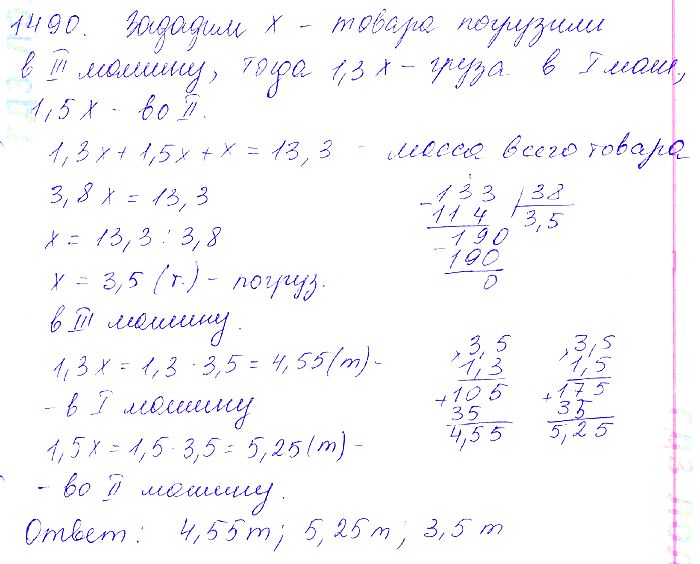 1490. Зададим х - товара погрузили
в III машину, тогда 1,3х - груза в I маш,
1,5х - во II.
1,3х + 1,5х + х = 13,3 - масса всего товара
3,8х = 13,3
х = 13,3 : 3,8
х = 3,5 (т.) - погруз.
в III машину.
133 | 38
- 114 3,5
190
- 190
0
1,3х = 1,3 · 3,5 = 4,55 (т) -
- в I машину
1,5х = 1,5 · 3,5 = 5,25 (т) -
- во II машину.
3,5
1,3
+ 105
35
4,55
3,5
1,5
+ 175
35
5,25
Ответ: 4,55т; 5,25т; 3,5т